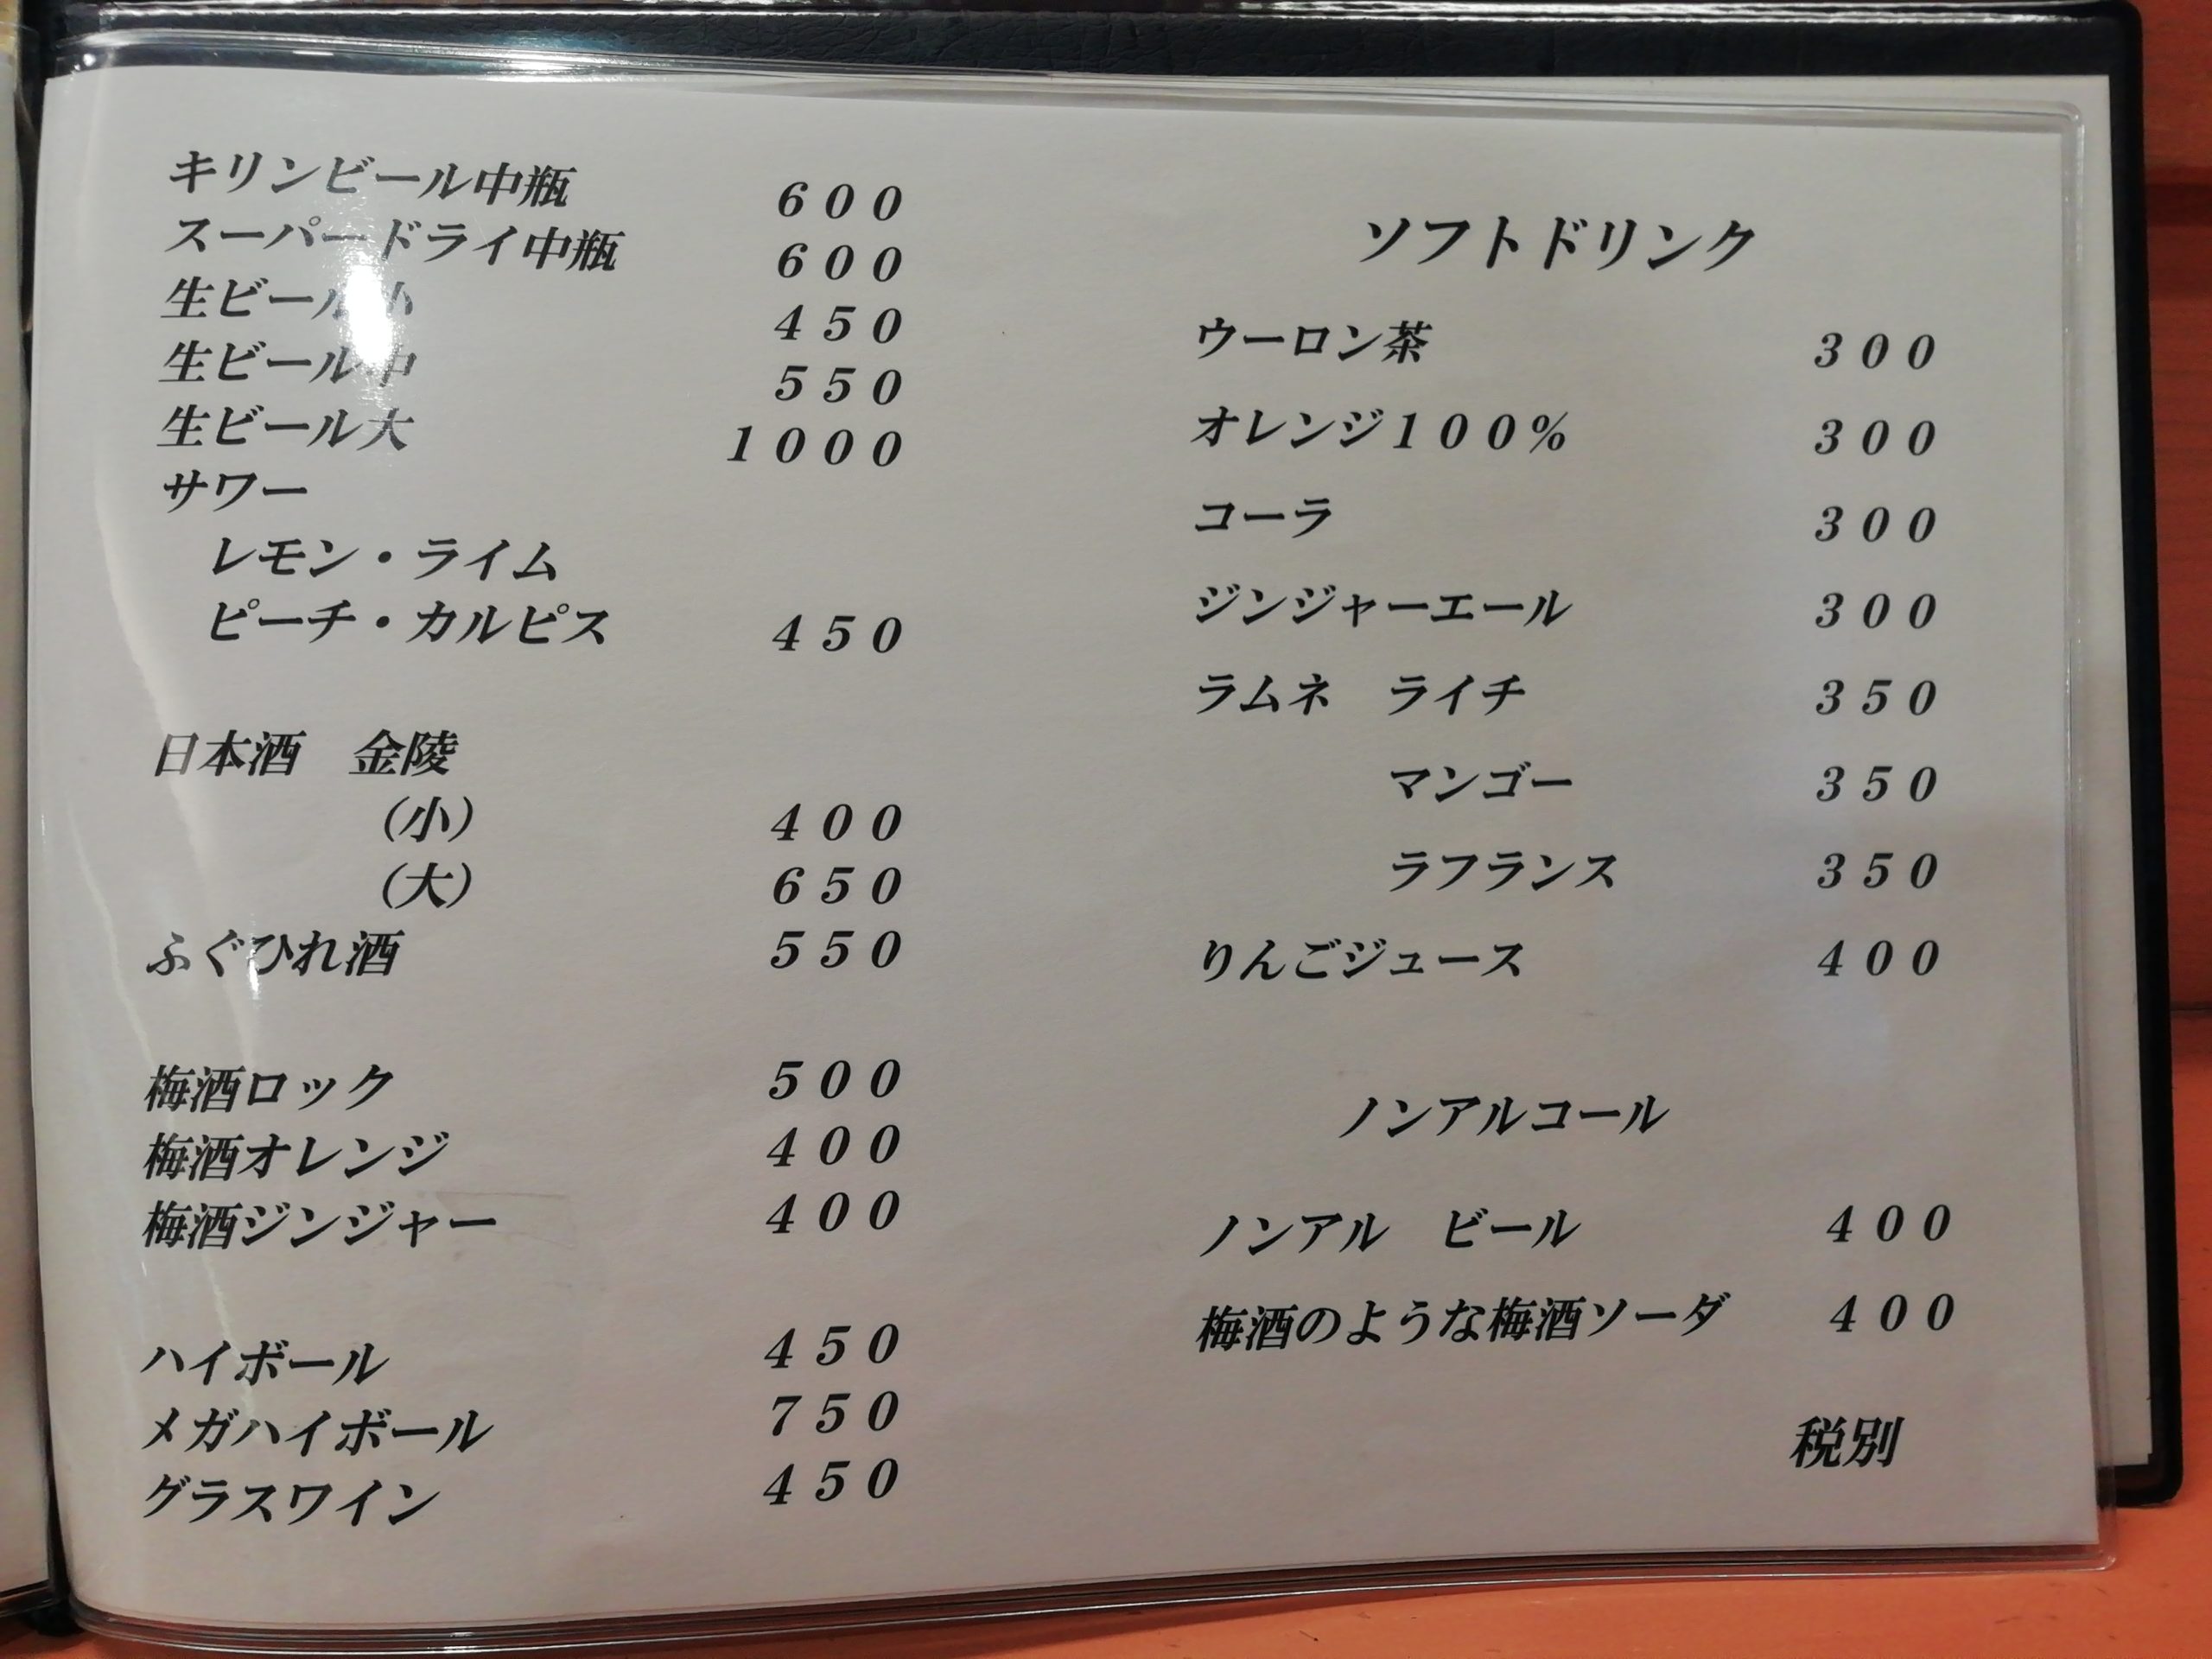 キリンビール中瓶 600
スーパードライ中瓶 600
生ビール小 450
生ビール中 550
生ビール大 1000
サワー
レモン・ライム
ピーチ・カルピス 450
日本酒　金陵
（小） 400
（大） 650
ふぐひれ酒 550
梅酒ロック 500
梅酒オレンジ 400
梅酒ジンジャー 400
ハイボール 450
メガハイボール 750
グラスワイン 450
ソフトドリンク
ウーロン茶 300
オレンジ100% 300
コーラ 300
ジンジャーエール 300
ラムネ　ライチ 350
マンゴー 350
ラフランス 350
りんごジュース 400
ノンアルコール
ノンアル　ビール 400
梅酒のような梅酒ソーダ 400
税別